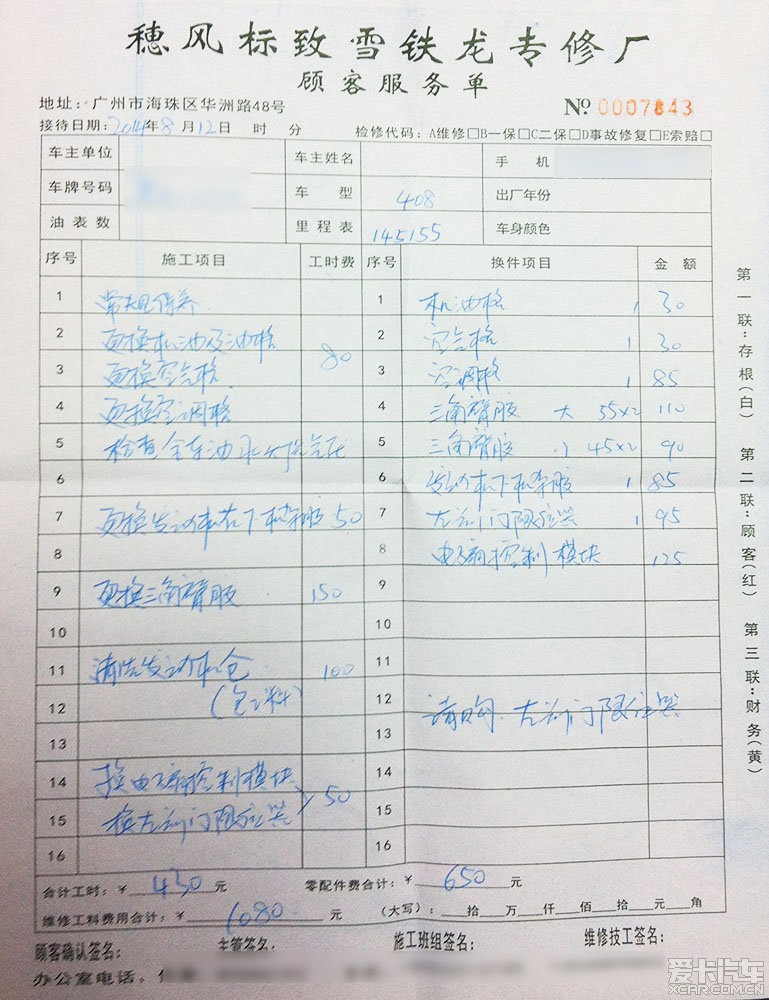 穗风标致雪铁龙专修厂
顾客服务单
地址：广州市海珠区华洲路48号
№ 0007843
接待日期：2014年8月12日 时 分 检修代码：A维修□B一保□C二保□D事故修复□E索赔□
车主单位 车主姓名 手机
车牌号码 车型 408 出厂年份
油表数 里程表 145155 车身颜色
序号 施工项目 工时费 序号 换件项目 金额
1 常规保养 1 机油格 1 30
2 更换机油及油格 80 2 空气格 1 30
3 更换空气格 3 空调格 1 85
4 更换空调格 4 三角臂胶 大 55×2 110
5 检查全车油水 5 三角臂胶 小 45×2 90
6 6 发动机下机架胶 1 85
7 更换发动机右下机架胶 50 7 左前门限位器 1 95
8 8 电脑控制模块 125
9 更换三角臂胶 150 9
10 10
11 清洁发动机仓 100 11
12 (包工料) 12 请购 左前门限位器
13 13
14 换电脑控制模块 14
15 换左前门限位器 50 15
16 16
合计工时：￥ 430 元 零配件费合计：￥ 650 元
维修工料费用合计：￥ 1080 元 (大写)：拾 万 仟 佰 拾 元 角
顾客确认签名： 主管签名： 施工班组签名： 维修技工签名：
办公室电话：
第一联：存根(白) 第二联：顾客(红) 第三联：财务(黄)
爱卡汽车
XCAR.COM.CN